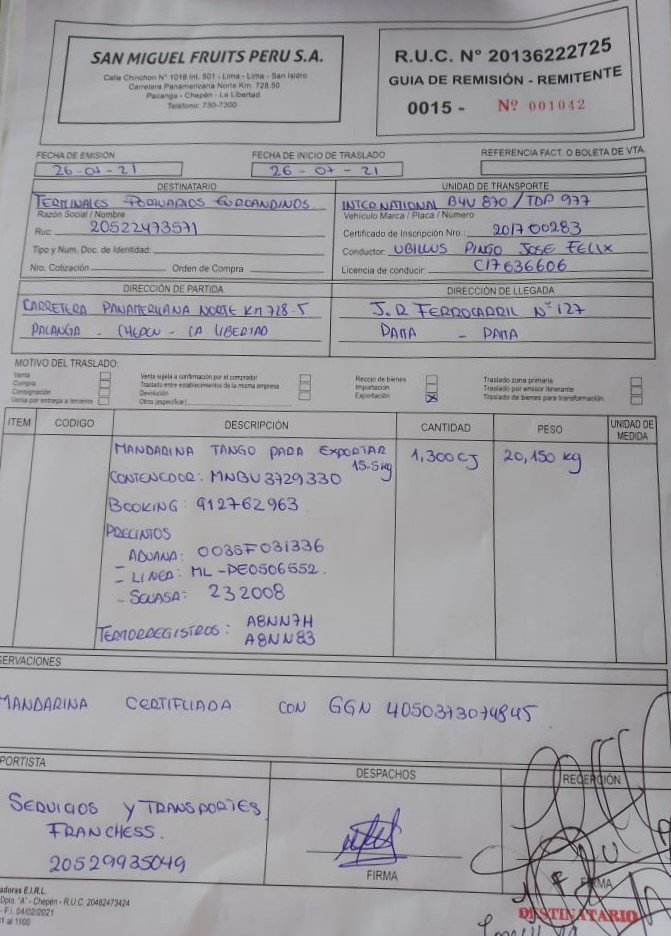 SAN MIGUEL FRUITS PERU S.A.
Calle Chinchon N° 1018 Int. 501 - Lima - Lima - San Isidro
Carretera Panamericana Norte Km. 728.50
Pacanga - Chepén - La Libertad
Teléfono: 730-7300
R.U.C. N° 20136222725
GUIA DE REMISIÓN - REMITENTE
0015 - Nº 001042
FECHA DE EMISIÓN
26-07-21
FECHA DE INICIO DE TRASLADO
26-07-21
REFERENCIA FACT. O BOLETA DE VTA.
DESTINATARIO
TERMINALES PORTUARIOS EUROANDINOS
Razón Social / Nombre
Ruc: 20522473571
Tipo y Num. Doc. de Identidad:
Nro. Cotización Orden de Compra
UNIDAD DE TRANSPORTE
INTERNATIONAL B4V 870 / TDP 977
Vehículo Marca / Placa / Número
Certificado de Inscripción Nro.: 201700283
Conductor: UBILLUS PINGO JOSE FELIX
Licencia de conducir: C17636606
DIRECCIÓN DE PARTIDA
CARRETERA PANAMERICANA NORTE KM 728.5
PACANGA - CHEPEN - LA LIBERTAD
DIRECCIÓN DE LLEGADA
J.R FERROCARRIL N° 127
PAITA - PAITA
MOTIVO DEL TRASLADO:
Venta
Compra
Consignación
Venta por entrega a terceros
Venta sujeta a confirmación por el comprador
Traslado entre establecimientos de la misma empresa
Devolución
Otros (especificar)
Recojo de bienes
Importación
Exportación X
Traslado zona primaria
Traslado por emisor itinerante
Traslado de bienes para transformación
ITEM CODIGO DESCRIPCIÓN CANTIDAD PESO UNIDAD DE MEDIDA
MANDARINA TANGO PARA EXPORTAR 1,300 CJ 20,150 kg
15.5kg
CONTENEDOR: MNBU3729330
BOOKING: 912762963
PRECINTOS
ADUANA: 0035F031336
- LINEA: ML-PE0506552.
- SENASA: 232008
TERMORREGISTROS: A8NN7H
A8NN83
SERVACIONES
MANDARINA CERTIFICADA CON GGN 4050373074845
PORTISTA
SERVICIOS Y TRANSPORTES
FRANCHESS.
20529935049
DESPACHOS
FIRMA
RECEPCIÓN
FIRMA
DESTINATARIO
adoras E.I.R.L.
Dpto. "A" - Chepén - R.U.C. 20482473424
- F.I. 04/02/2021
al 1100